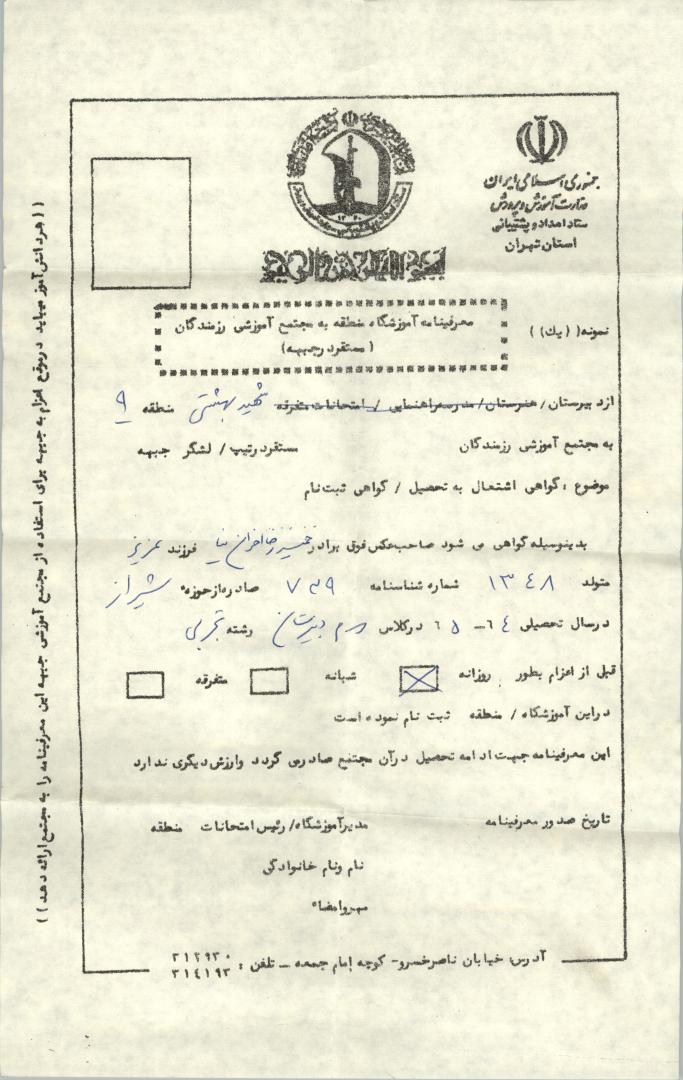 جمهوری اسلامی ایران
وزارت آموزش و پرورش
ستاد امداد و پشتیبانی
استان تهران
نمونه ( (یك) )
معرفینامه آموزشگاه منطقه به مجتمع آموزشی رزمندگان
(مستقر در جبهه)
از دبیرستان / هنرستان / مدرسه راهنمایی / امتحانات متفرقه شهید بهشتی منطقه ۹
به مجتمع آموزشی رزمندگان مستقر در تیپ / لشگر جبهه
موضوع : گواهی اشتغال به تحصیل / گواهی ثبت نام
بدینوسیله گواهی می شود صاحب عکس فوق برادر فرزند عزیز
متولد ۱۳۴۸ شماره شناسنامه ۷۳۹ صادره از حوزه شیراز
در سال تحصیلی ٦٤ - ٦٥ در کلاس دوم دبیرستان رشته تجربی
قبل از اعزام بطور روزانه شبانه متفرقه
در این آموزشگاه / منطقه ثبت نام نموده است
این معرفینامه جهت ادامه تحصیل در آن مجتمع صادر می گردد وارزش دیگری ندارد
تاریخ صدور معرفینامه مدیر آموزشگاه / رئیس امتحانات منطقه
نام ونام خانوادگی
مهر وامضاء
آدرس: خیابان ناصر خسرو - کوچه امام جمعه - تلفن : ۳۱۲۹۳۰
۳۱٤۱۹۳
( ( هر دانش آموز میباید در موقع اعزام به جبهه برای استفاده از مجتمع آموزشی جبهه این معرفینامه را به مجتمع ارائه دهد ) )